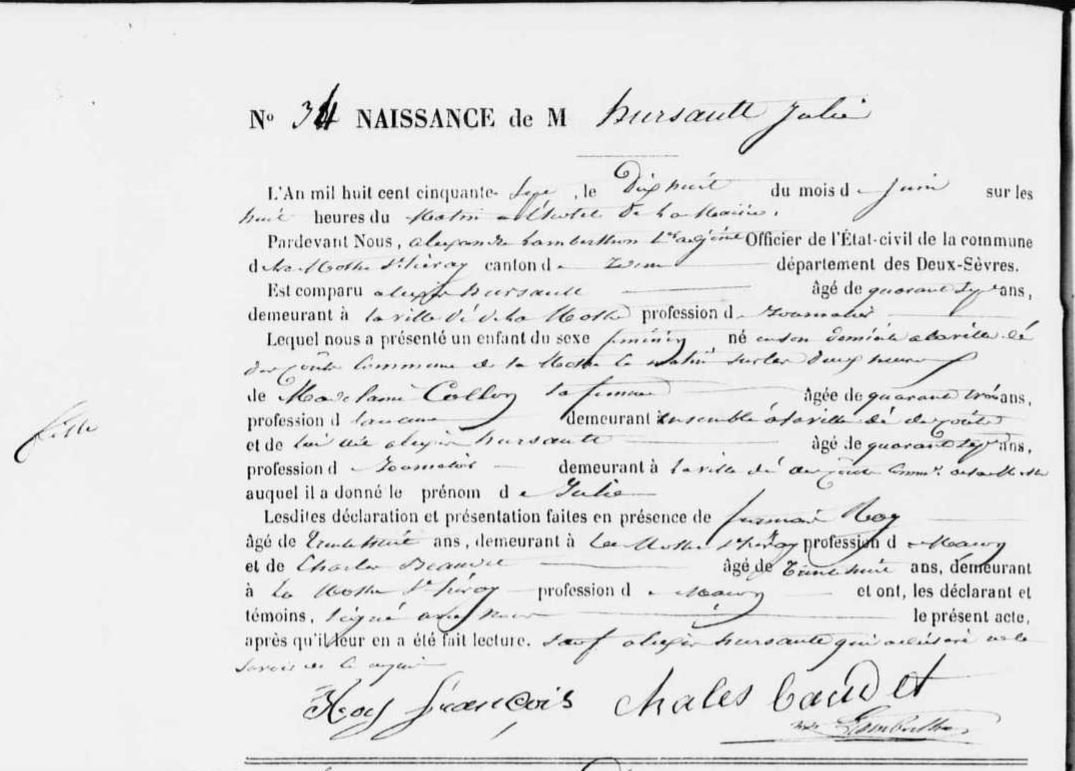 No 34 NAISSANCE de M hursault Julie
L'An mil huit cent cinquante- Sept , le Dix huit du mois de Juin sur les
huit heures du Matin a l'hotel de La Mairie.
Pardevant Nous, alexandre Lamberthon Officier de l'État-civil de la commune
de La Mothe St héray canton de département des Deux-Sèvres.
Est comparu alexis hursault âgé de quarante Sept ans,
demeurant à la ville dé de La Mothe profession de Journalier
Lequel nous a présenté un enfant du sexe féminin né en son domicile a la ville dé
Commune de la Mothe le matin sur les Deux heures
de Madelaine la femme âgée de quarante trois ans,
profession d demeurant ensemble a la ville dé
et de lui dit alexis hursault âgé de quarante Sept ans,
profession d Journalier demeurant à la ville dé de la Mothe
auquel il a donné le prénom de Julie
Lesdites déclaration et présentation faites en présence de françois Roy
âgé de Trente huit ans, demeurant à La Mothe St héray profession de
et de Charles Beaudet âgé de Trente huit ans, demeurant
à La Mothe St héray profession de et ont, les déclarant et
témoins, signé avec nous le présent acte,
après qu'il leur en a été fait lecture. Sauf alexis hursault qui a déclaré ne le
savoir de ce requis
fille
Roy françois chales baudet
Lamberthon